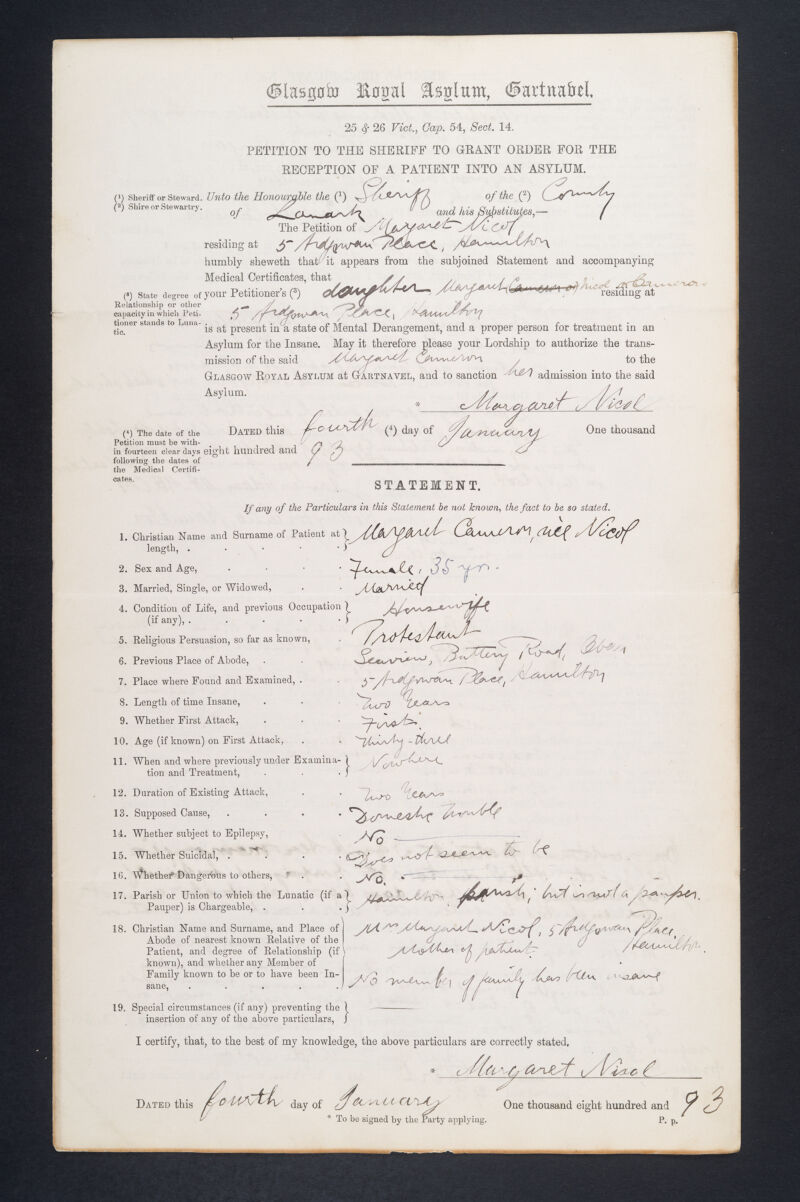 Glasgow Royal Asylum, Gartnavel.
25 & 26 Vict., Cap. 54, Sect. 14.
PETITION TO THE SHERIFF TO GRANT ORDER FOR THE
RECEPTION OF A PATIENT INTO AN ASYLUM.
(1) Sheriff or Steward.
(2) Shire or Stewartry.
Unto the Honourable the (1) Sheriff of the (2) County
of Lanark and his Substitutes,—
The Petition of Margaret Nicol
residing at 5 Ardgowan Place, Hamilton
humbly sheweth that it appears from the subjoined Statement and accompanying
Medical Certificates, that
(3) State degree of
Relationship or other
capacity in which Peti-
tioner stands to Luna-
tic.
your Petitioner's (3) daughter Margaret Cameron or Nicol or Cameron residing at
5 Ardgowan Place, Hamilton
is at present in a state of Mental Derangement, and a proper person for treatment in an
Asylum for the Insane. May it therefore please your Lordship to authorize the trans-
mission of the said Margaret Cameron to the
GLASGOW ROYAL ASYLUM AT GARTNAVEL, and to sanction her admission into the said
Asylum.
* Margaret Nicol
(4) The date of the
Petition must be with-
in fourteen clear days
following the dates of
the Medical Certifi-
cates.
DATED this fourth (4) day of January One thousand
eight hundred and 93
STATEMENT.
If any of the Particulars in this Statement be not known, the fact to be so stated.
1. Christian Name and Surname of Patient at
length, . . . . . Margaret Cameron, née Nicol
2. Sex and Age, . . . . Female, 35 yrs.
3. Married, Single, or Widowed, . . Married
4. Condition of Life, and previous Occupation
(if any), . . . . . Housewife
5. Religious Persuasion, so far as known, . Protestant
6. Previous Place of Abode, . . . Seaview, Battery Road, Oban
7. Place where Found and Examined, . . 5 Ardgowan Place, Hamilton
8. Length of time Insane, . . . Two Years
9. Whether First Attack, . . . First
10. Age (if known) on First Attack, . . Thirty-three
11. When and where previously under Examina-
tion and Treatment, . . . Nowhere
12. Duration of Existing Attack, . . Two Years
13. Supposed Cause, . . . . Domestic trouble
14. Whether subject to Epilepsy, . . No
15. Whether Suicidal, . . . . Does not seem to be
16. Whether Dangerous to others, . . No.
17. Parish or Union to which the Lunatic (if a
Pauper) is Chargeable, . . . Hamilton parish; but is not a pauper.
18. Christian Name and Surname, and Place of
Abode of nearest known Relative of the
Patient, and degree of Relationship (if
known), and whether any Member of
Family known to be or to have been In-
sane, . . . . .
Mrs Margaret Nicol, 5 Ardgowan Place,
Hamilton.
Mother of patient.
No member of family has been insane
19. Special circumstances (if any) preventing the
insertion of any of the above particulars,
I certify, that, to the best of my knowledge, the above particulars are correctly stated.
* Margaret Nicol
DATED this fourth day of January One thousand eight hundred and 93
* To be signed by the Party applying.
P. p.